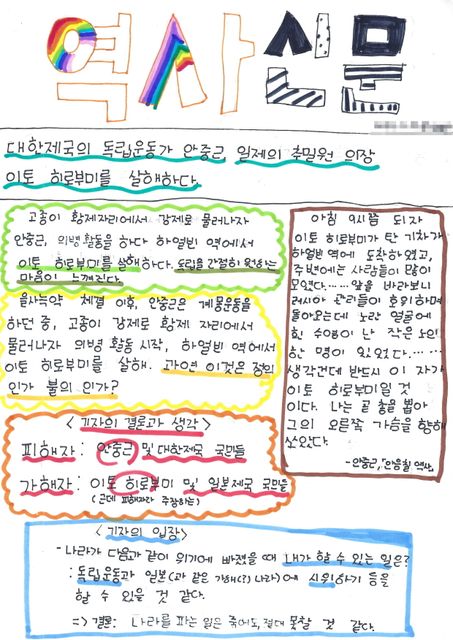 역사신문
대한제국의 독립운동가 안중근 일제의 추밀원 의장
이토 히로부미를 살해하다.
고종이 황제자리에서 강제로 물러나자
안중근, 의병활동을 하다 하얼빈 역에서
이토 히로부미를 살해하다. 도립을 간절히 원하는
마음이 느껴진다.
을사늑약 체결 이후, 안중근은 계몽운동을
하던 중, 고종이 강제로 황제 자리에서
물러나자 의병 활동 시작, 하얼빈 역에서
이토 히로부미를 살해. 과연 이것은 정의
인가 불의 인가?
<기자의 결론과 생각>
피해자: 안중근 및 대한제국 국민들
가해자: 이토 히로부미 및 일본제국 국민들
(근데 피해자라 주장하는)
아침 9시쯤 되자
이토 히로부미가 탄 기차가
하얼빈 역에 도착하였고,
주변에는 사람들이 많이
모였다...... 앞을 바라보니
러시아 관리들이 호위하며
돌아오는데 노란 얼굴에
흰 수염이 난 작은 노인
한 명이 있었다......
생각건데 반드시 이 자가
이토 히로부미일 것
이다. 나는 곧 총을 뽑아
그의 오른쪽 가슴을 향해
쏘았다.
-안중근, 「안응칠 역사」
<기자의 입장>
- 나라가 다음과 같이 위기에 빠졌을 때 내가 할 수 있는 일은?
: 독립운동과 일본(과 같은 가해(?) 나라)에 시위하기 등을
할 수 있을 것 같다.
=> 결론: 나라를 파는 일은 죽어도, 절대 못할 것 같다.